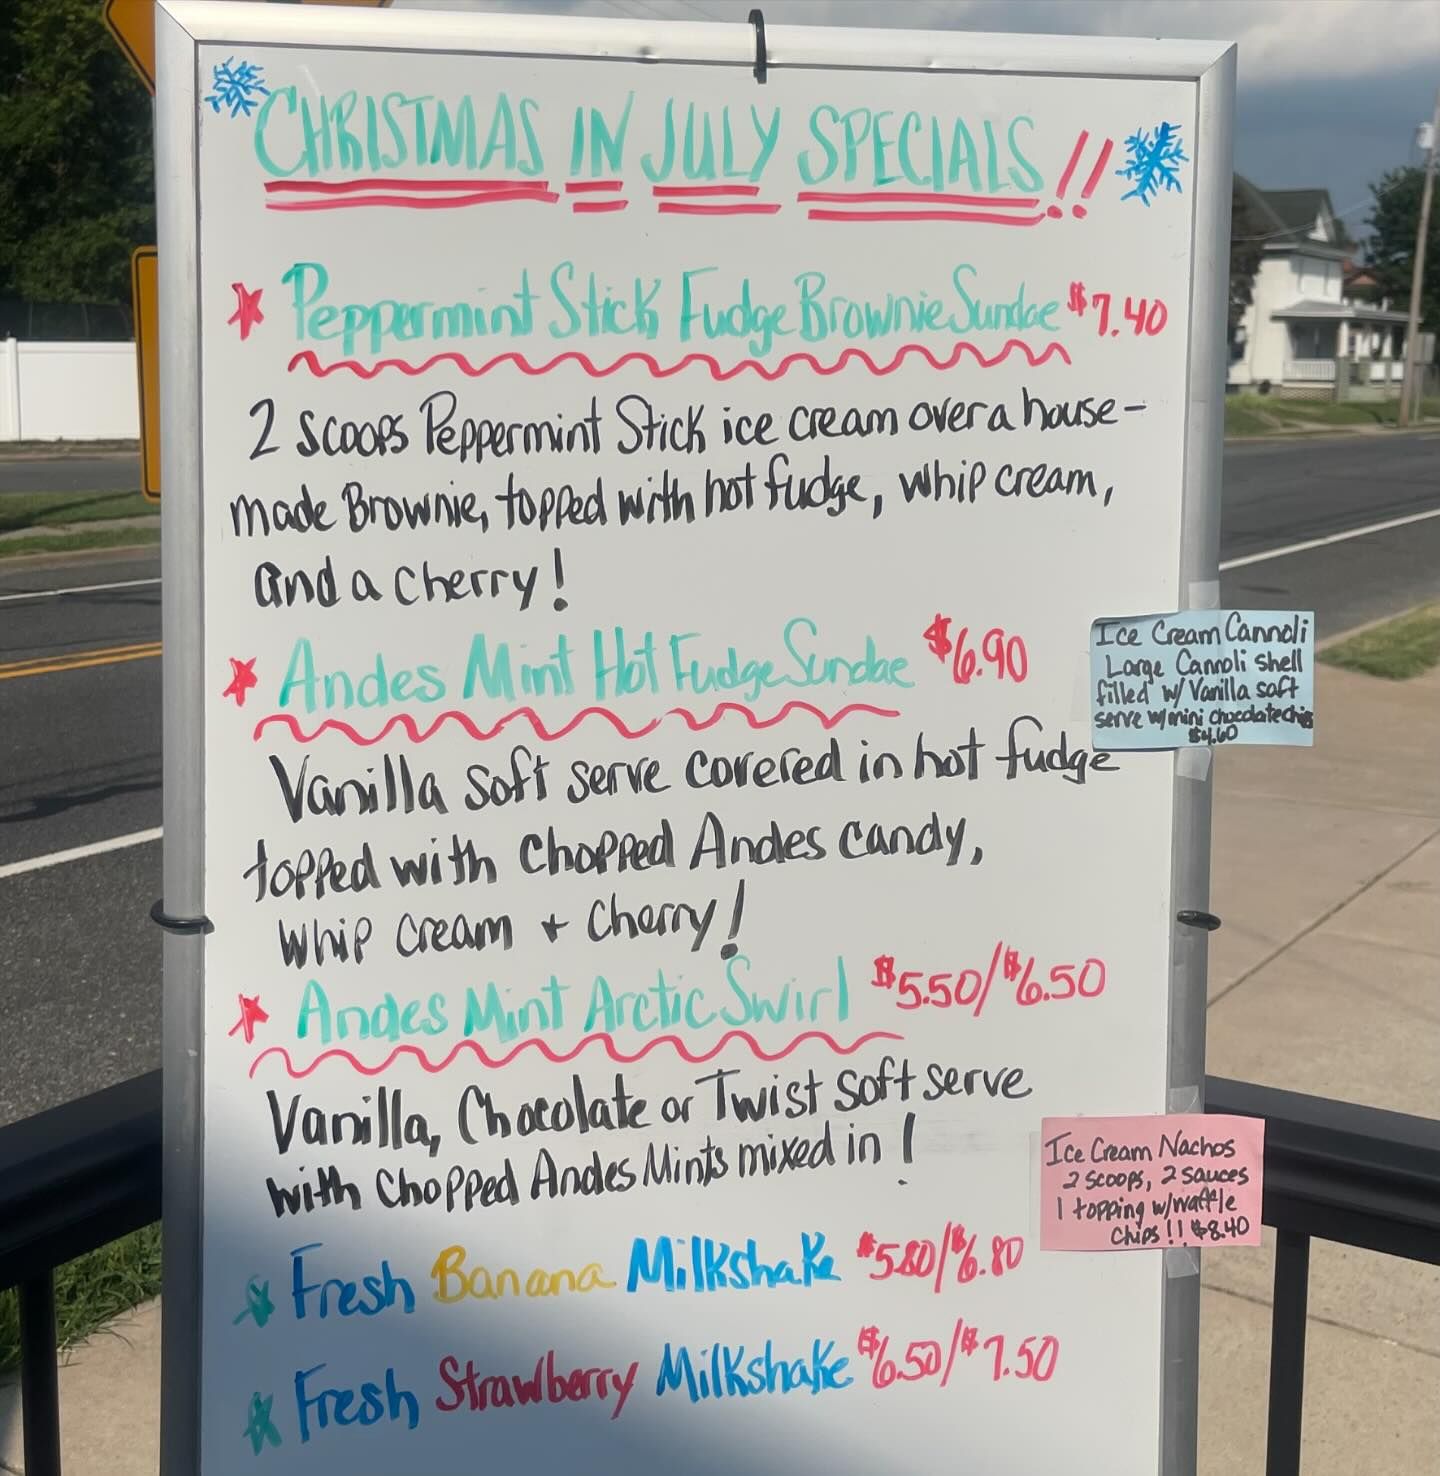 CHRISTMAS IN JULY SPECIALS!!
Peppermint Stick Fudge Brownie Sundae $7.40
2 scoops Peppermint Stick ice cream over a house-
made Brownie, topped with hot fudge, whip cream,
and a cherry!
Andes Mint Hot Fudge Sundae $6.90
Vanilla soft serve covered in hot fudge
topped with chopped Andes candy,
whip cream + cherry!
Andes Mint Arctic Swirl $5.50/$6.50
Vanilla, Chocolate or Twist soft serve
with chopped Andes Mints mixed in!
Fresh Banana Milkshake $5.80/$6.80
Fresh Strawberry Milkshake $6.50/$7.50
Ice Cream Cannoli
Large Cannoli shell
filled w/ Vanilla soft
serve w/mini chocolate chips
$4.60
Ice Cream Nachos
2 scoops, 2 sauces
1 topping w/waffle
chips!! $8.40